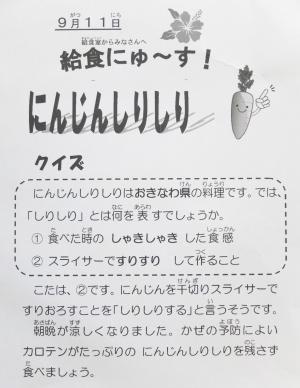 9月11日
給食室からみなさんへ
給食にゅ～す！
にんじんしりしり
クイズ
にんじんしりしりはおきなわ県の料理です。では、
「しりしり」とは何を表すでしょうか。
① 食べた時の しゃきしゃき した食感
② スライサーですりすり して作ること
こたは、②です。にんじんを千切りスライサーで
すりおろすことを「しりしりする」と言うそうです。
朝晩が涼しくなりました。かぜの予防によい
カロテンがたっぷりの にんじんしりしりを残さず
食べましょう。